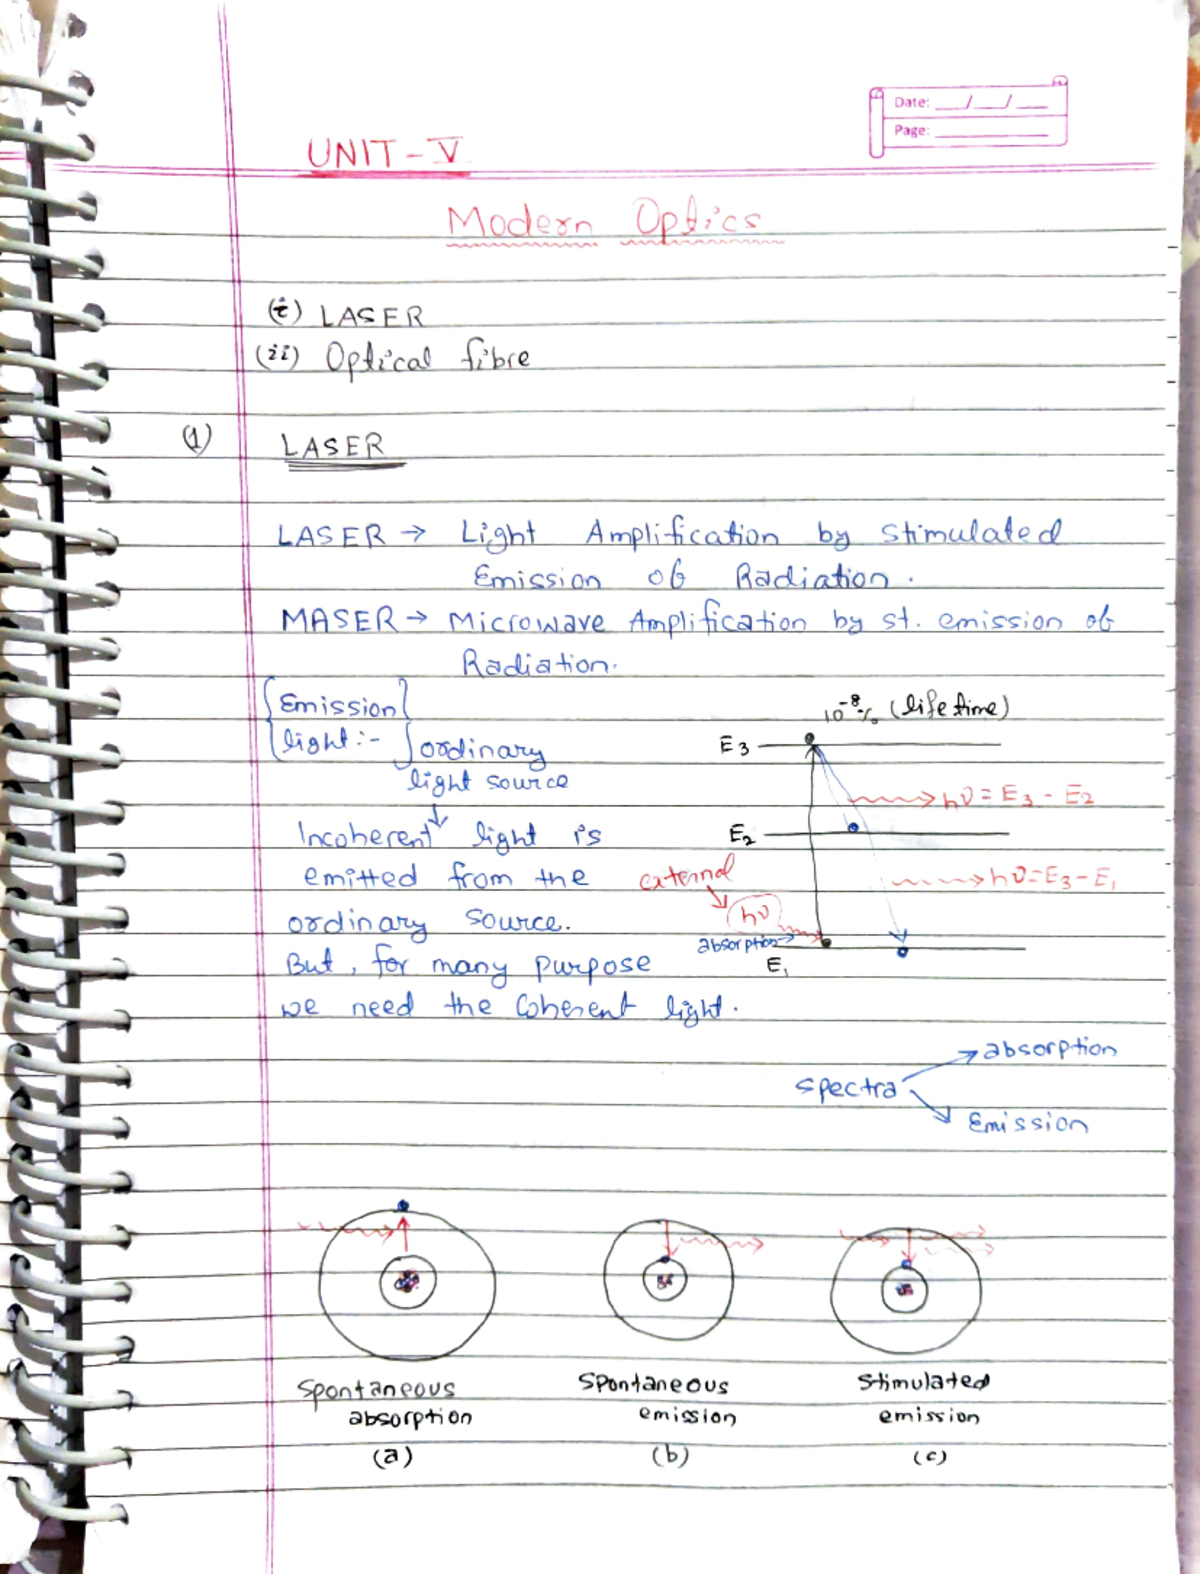 Date: __/__/__
Page: ________
UNIT-V
Modern Optics
(i) LASER
(ii) Optical fibre
(1) LASER
LASER → Light Amplification by Stimulated
Emission of Radiation.
MASER → Microwave Amplification by st. emission of
Radiation.
Emission
light:- ordinary
light source
↓
Incoherent light is
emitted from the
ordinary source.
But, for many purpose
we need the Coherent light.
(life time)
E3
hν = E3 - E2
E2
external
hν=E3-E1
hν
absorption→
E1
spectra
absorption
Emission
Spontaneous
absorption
(a)
Spontaneous
emission
(b)
Stimulated
emission
(c)